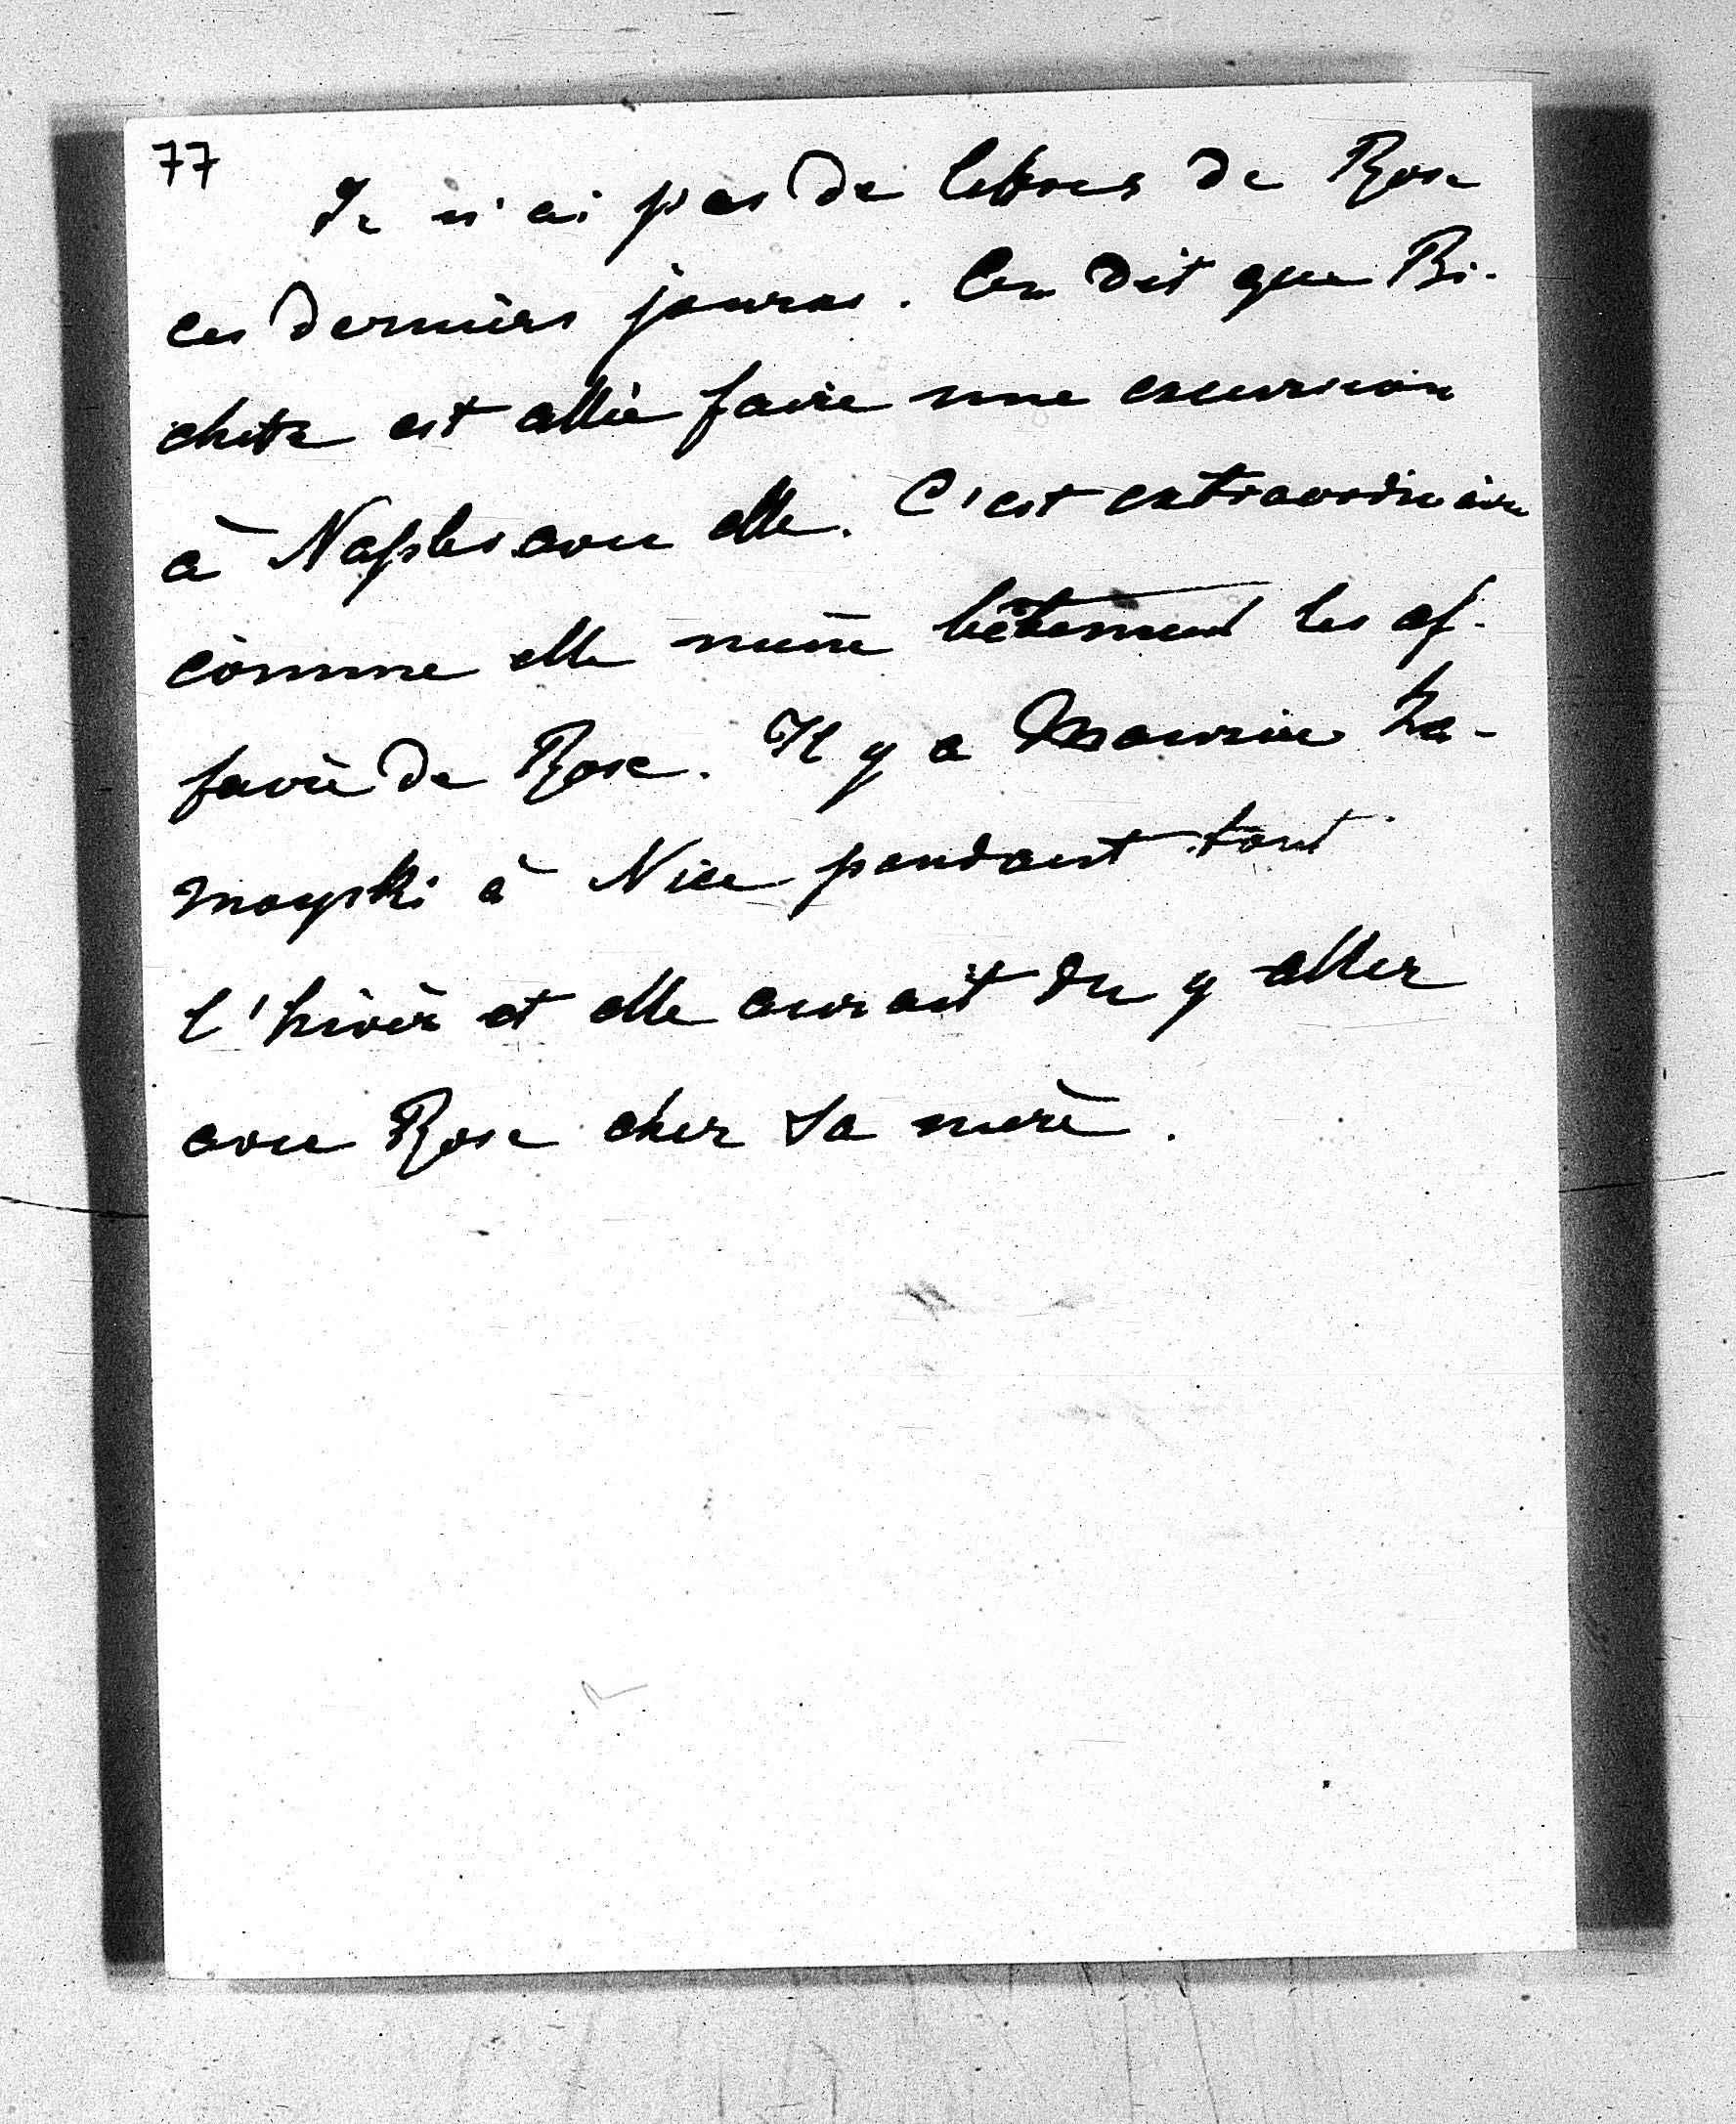 77
Je n'ai pas de lettres de Rose
ces derniers jours. On dit que Bi-
chette est allée faire une excursion
à Naples avec elle. C'est extraordinaire
comme elle mène bêtement les af-
faire de Rose. Il y a Maurice Za-
moyski à Nice pendant tout
l'hiver et elle aurait du y aller
avec Rose chez sa mère.